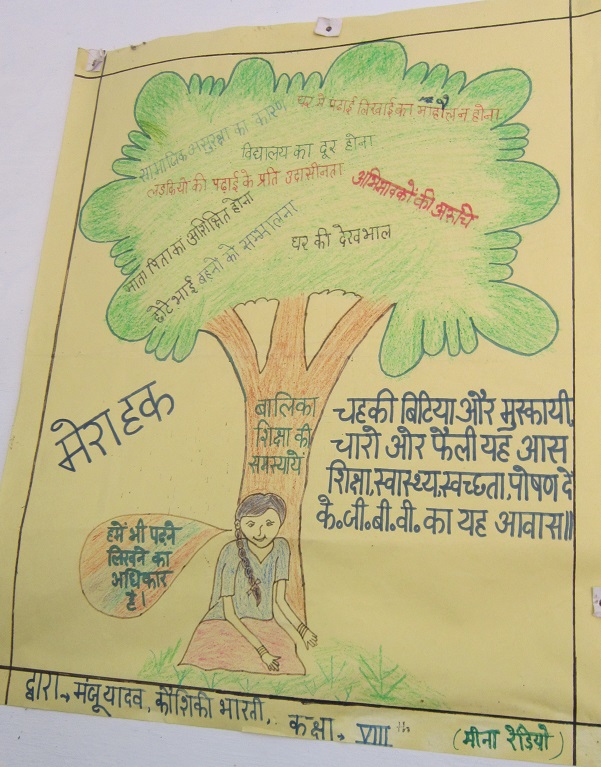 घर में पढ़ाई लिखाई का माहौल न होना
सामाजिक असुरक्षा का कारण
विद्यालय का दूर होना
लड़कियों की पढ़ाई के प्रति उदासीनता
अभिभावकों की अरुचि
माता पिता का अशिक्षित होना
छोटे भाई बहनो को सम्भालना
घर की देखभाल
मेरा हक
बालिका
शिक्षा की
समस्यायें
चहकी बिटिया और मुस्कायी,
चारो ओर फैली यह आस
शिक्षा,स्वास्थ्य,स्वच्छता,पोषण दे
के.जी.बी.वी. का यह आवास॥
हमें भी पढ़ने
लिखने का
अधिकार
है।
द्वारा→ मंजू यादव, कौशिकी भारती, कक्षा→ VIII th (मीना रेडियो)